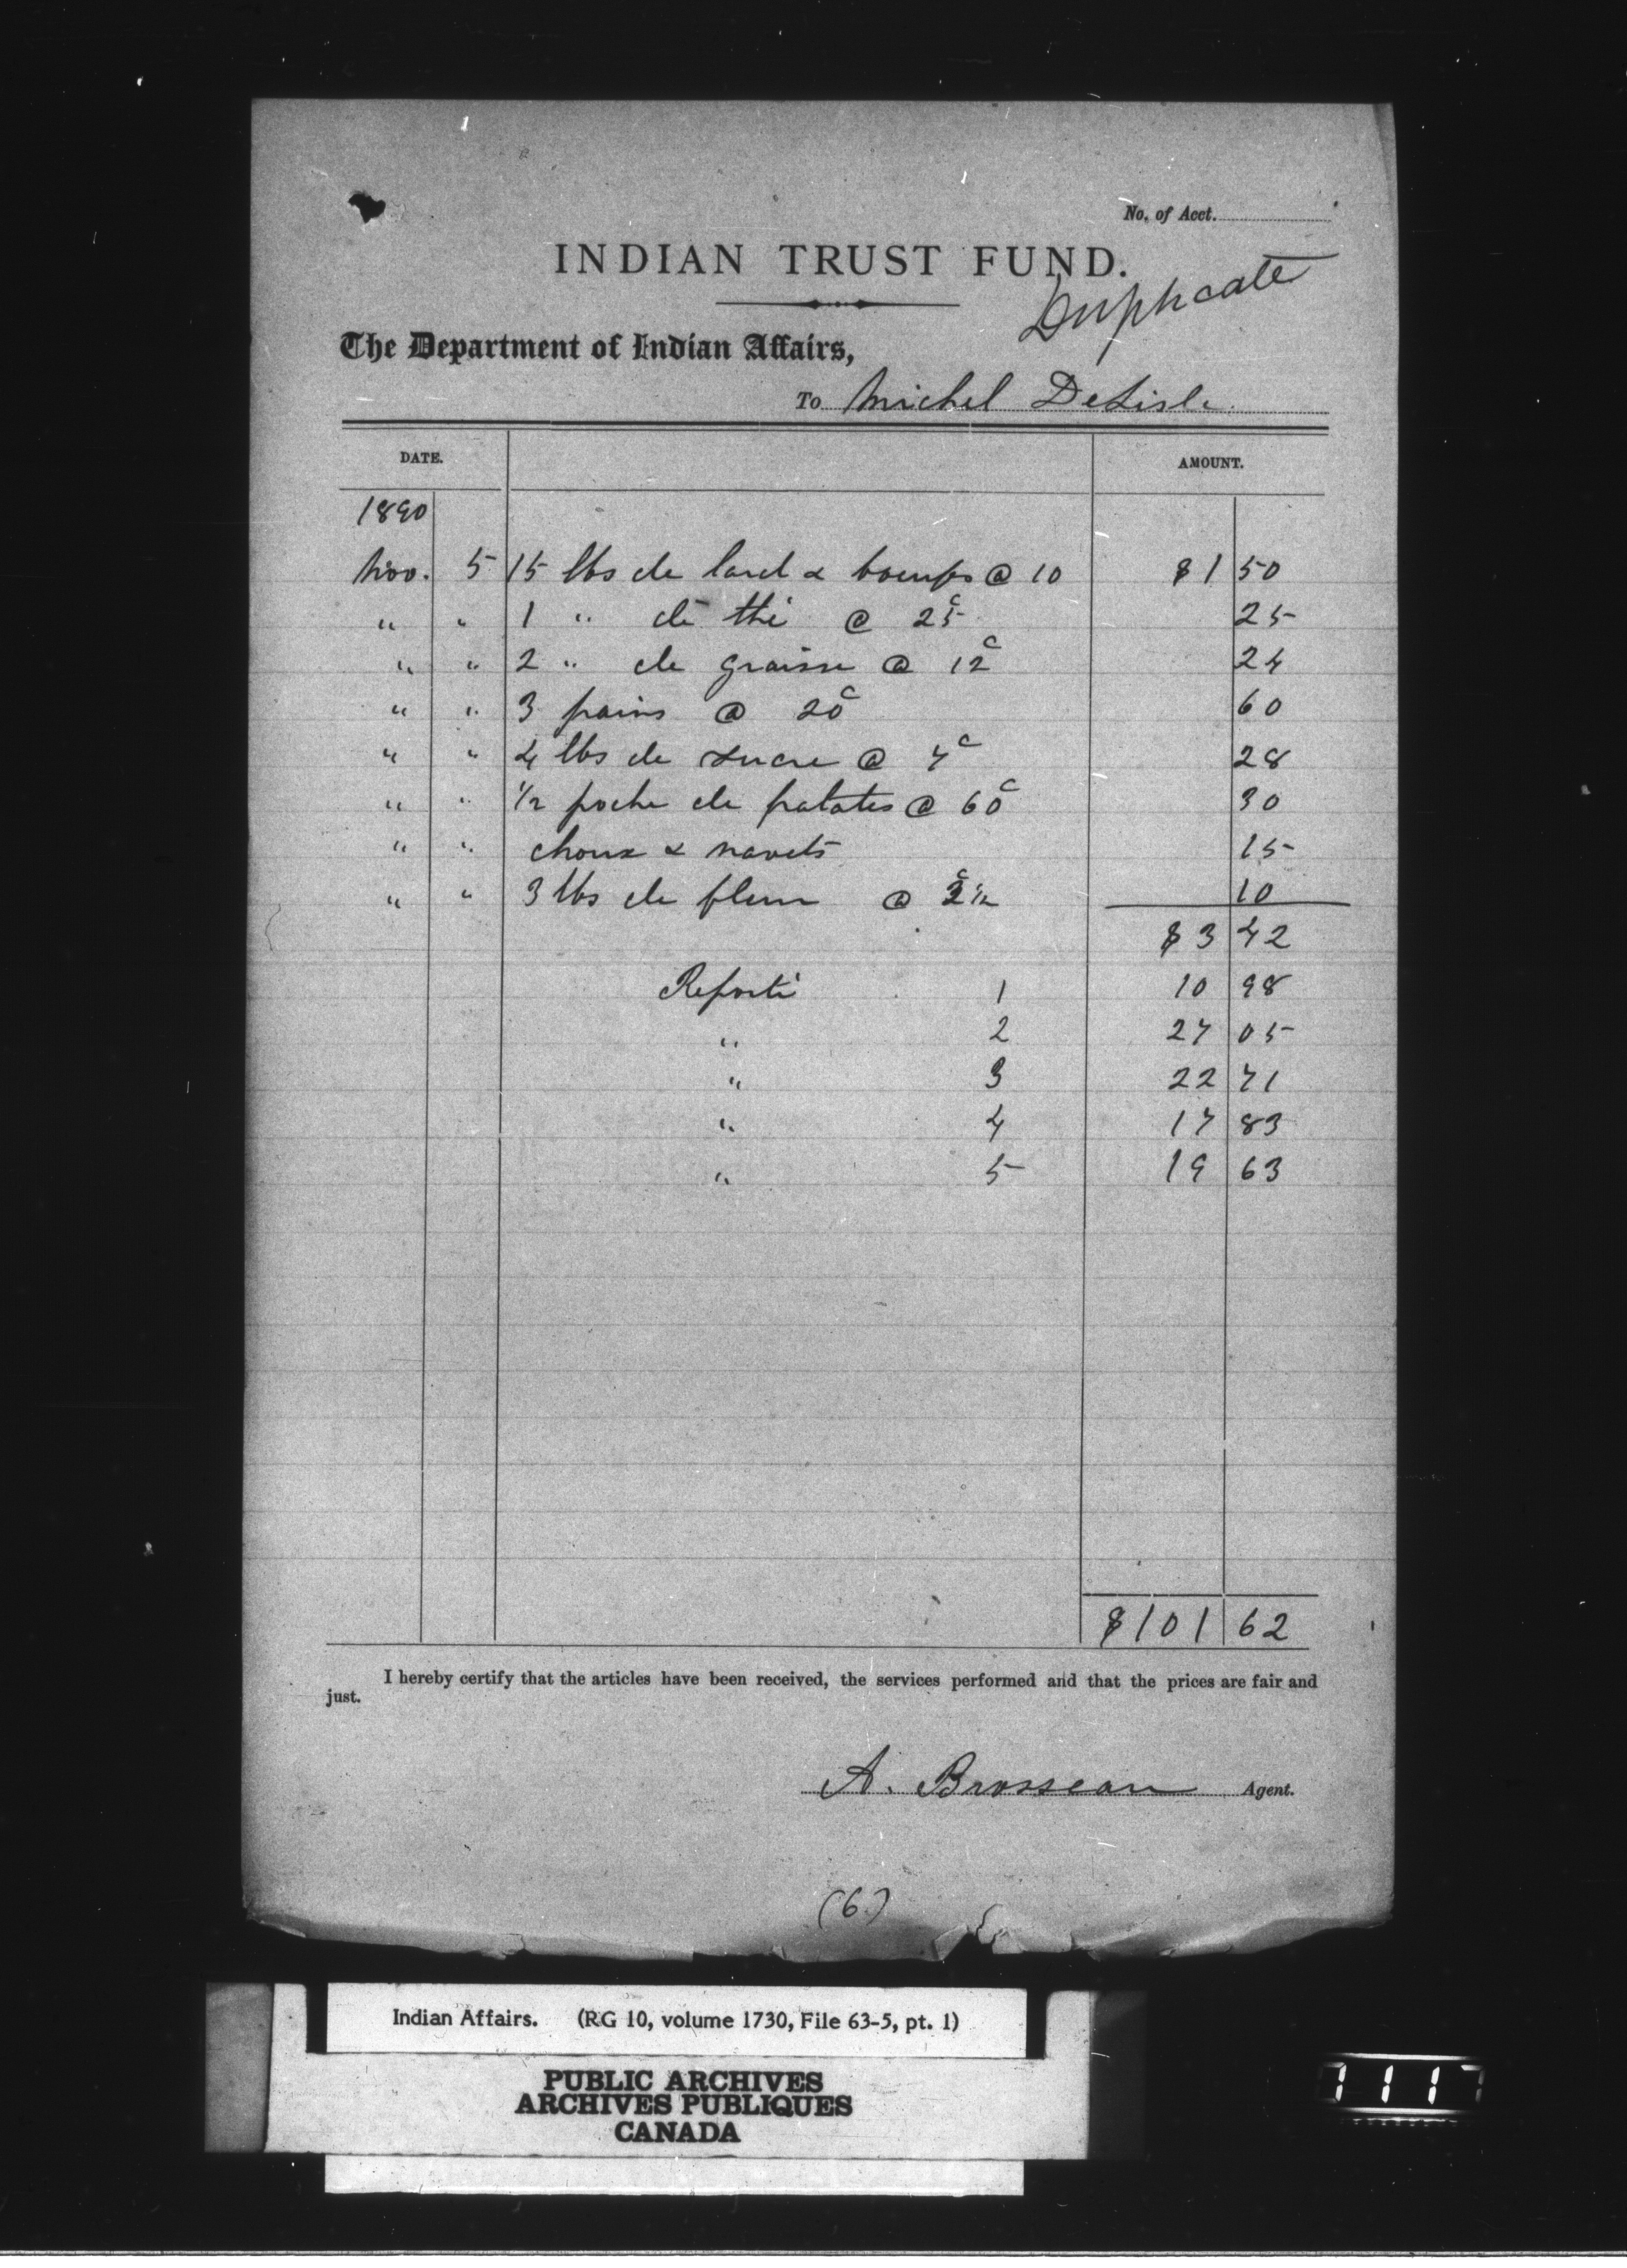 No. of Acct.
INDIAN TRUST FUND.
Duplicate
The Department of Indian Affairs,
To Michel DeLisle.
DATE. AMOUNT.
1890
Nov. 5 15 lbs de lard & boeufs @ 10 $1 50
" " 1 " de thé @ 25c 25
" " 2 " de graisse @ 12c 24
" " 3 pains @ 20c 60
" " 4 lbs de sucre @ 7c 28
" " 1/2 poche de patates @ 60c 30
" " choux & navets 15
" " 3 lbs de fleur @ 3c 1/2 10
$3 42
Reporté 1 10 98
" 2 27 05
" 3 22 71
" 4 17 83
" 5 19 63
$101 62
I hereby certify that the articles have been received, the services performed and that the prices are fair and
just.
A. Brosseau Agent.
(6)
Indian Affairs. (RG 10, volume 1730, File 63-5, pt. 1)
PUBLIC ARCHIVES
ARCHIVES PUBLIQUES
CANADA
7117